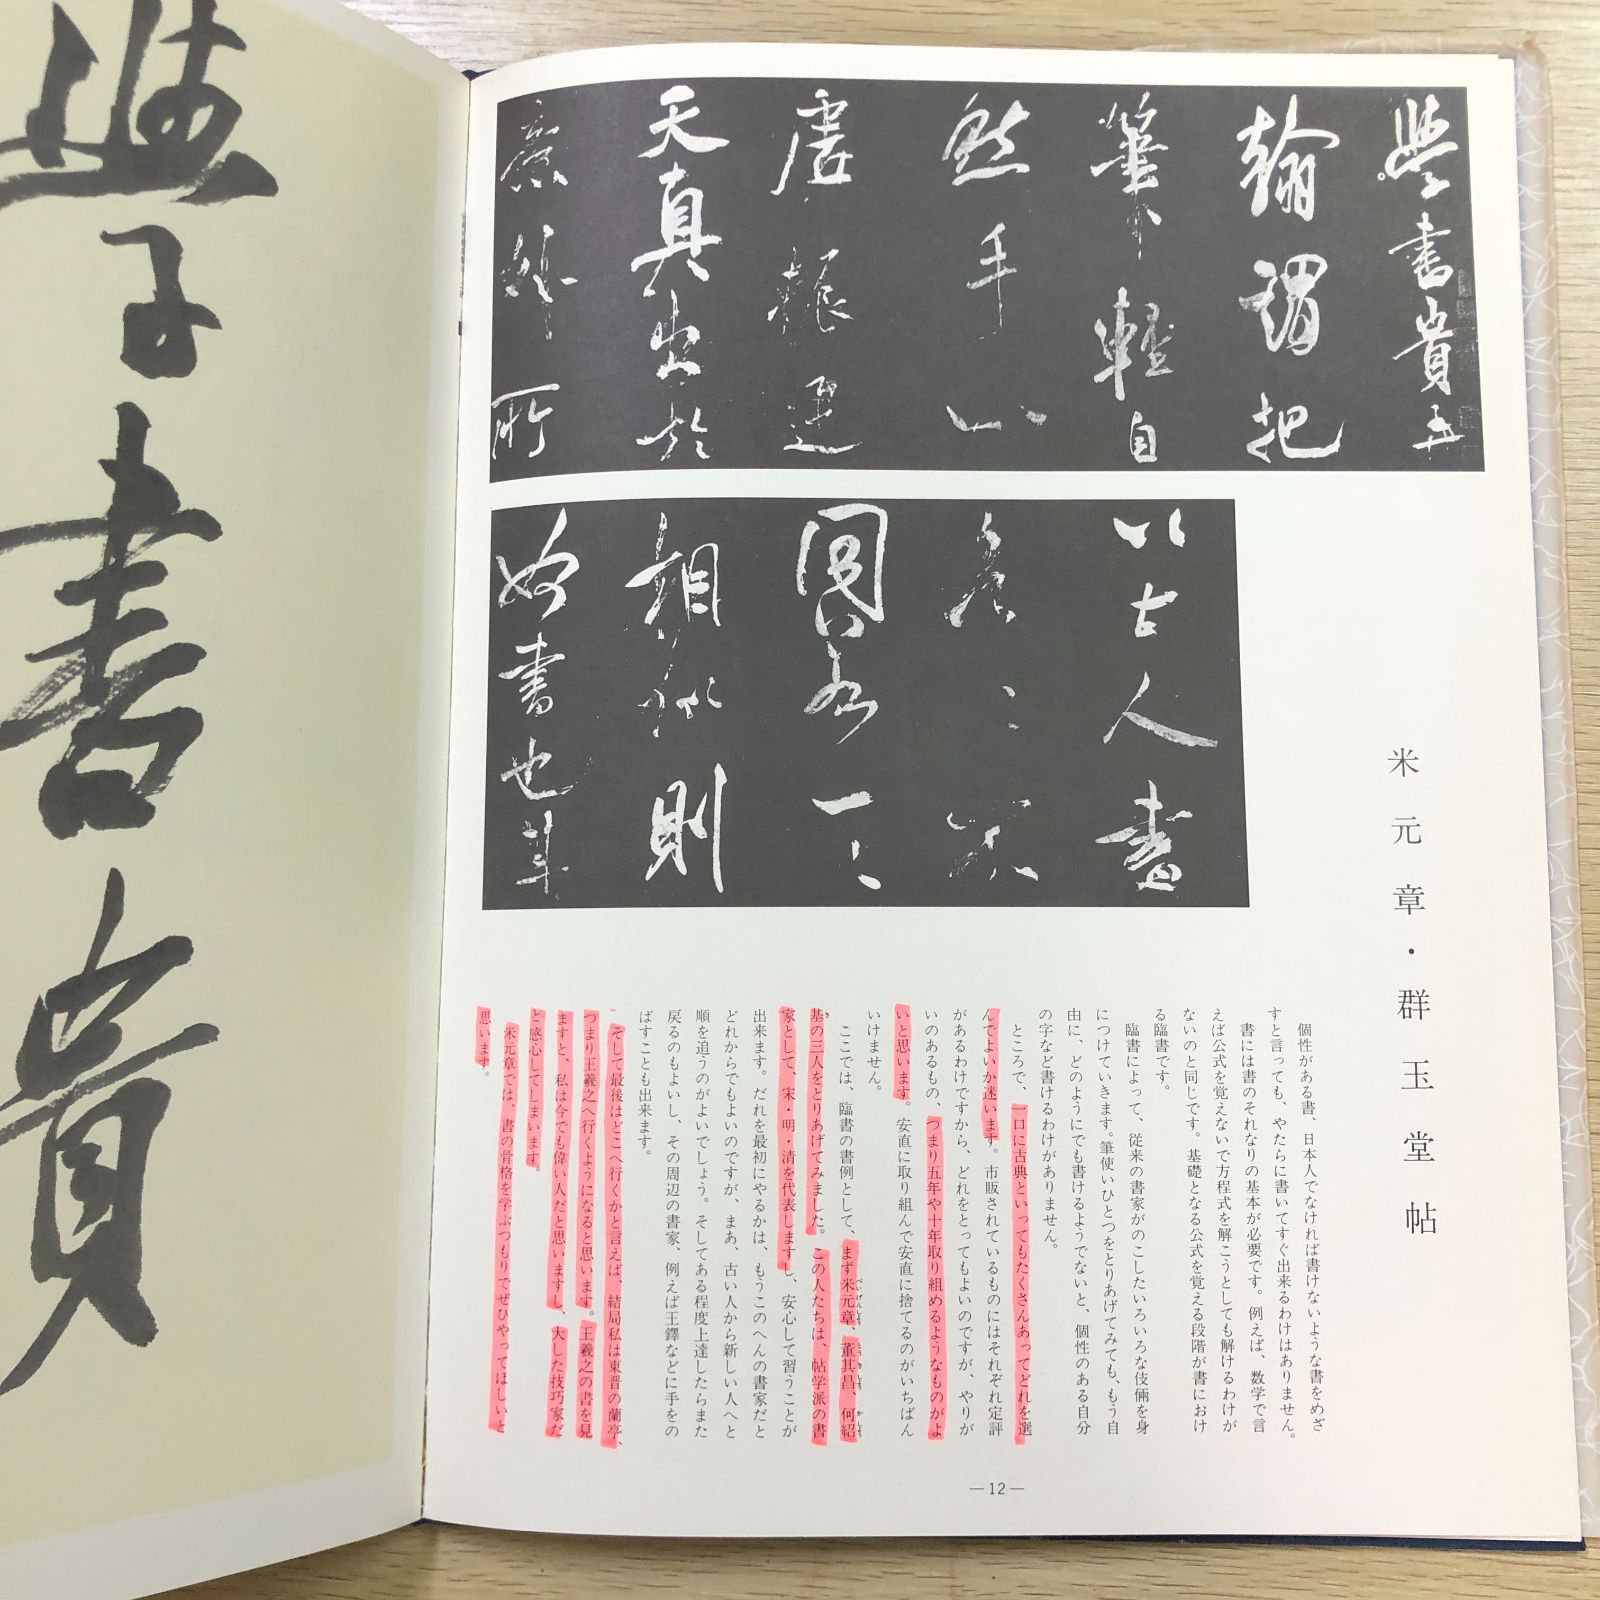 學書貴
學書貴弄
翰謂把
筆輕自
然手心
虛振迅
天真出於
意外所
以古人書
各各不
同若一一
相似則
奴書也其
米元章・群玉堂帖
個性がある書、日本人でなければ書けないような書をめざ
すと言っても、やたらに書いてすぐ出来るわけはありません。
書には書のそれなりの基本が必要です。例えば、数学で言
えば公式を覚えないで方程式を解こうとしても解けるわけが
ないのと同じです。基礎となる公式を覚える段階が書におけ
る臨書です。
臨書によって、従来の書家がのこしたいろいろな伎倆を身
につけていきます。筆使いひとつをとりあげてみても、もう自
由に、どのようにでも書けるようでないと、個性のある自分
の字など書けるわけがありません。
ところで、一口に古典といってもたくさんあってどれを選
んでよいか迷います。市販されているものにはそれぞれ定評
があるわけですから、どれをとってもよいのですが、やりが
いのあるもの、つまり五年や十年取り組めるようなものがよ
いと思います。安直に取り組んで安直に捨てるのがいちばん
いけません。
ここでは、臨書の書例として、まず米元章、董其昌、何紹
基の三人をとりあげてみました。この人たちは、帖学派の書
家として、宋・明・清を代表しますし、安心して習うことが
出来ます。だれを最初にやるかは、もうこのへんの書家だと
どれからでもよいのですが、まあ、古い人から新しい人へと
順を追うのがよいでしょう。そしてある程度上達したらまた
戻るのもよいし、その周辺の書家、例えば王鐸などに手をの
ばすことも出来ます。
そして最後はどこへ行くかと言えば、結局私は東晋の蘭亭、
つまり王羲之へ行くようになると思います。王羲之の書を見
ますと、私は今でも偉い人だと思いますし、大した技巧家だ
と感心してしまいます。
米元章では、書の骨格を学ぶつもりでぜひやってほしいと
思います。
—12—